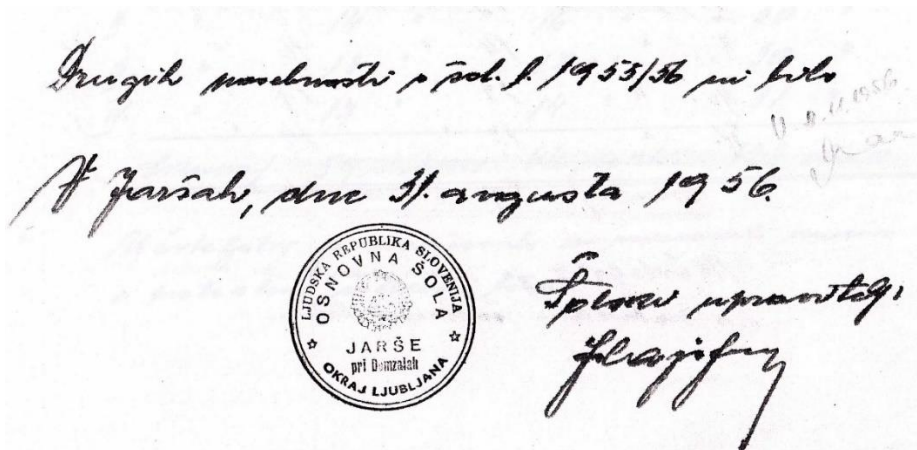 Drugih posebnosti v šol. l. 1955/56 ni bilo
V Jaršah, dne 31. avgusta 1956.
LJUDSKA REPUBLIKA SLOVENIJA
OSNOVNA ŠOLA
JARŠE
pri Domžalah
OKRAJ LJUBLJANA
Šolski upravitelj: